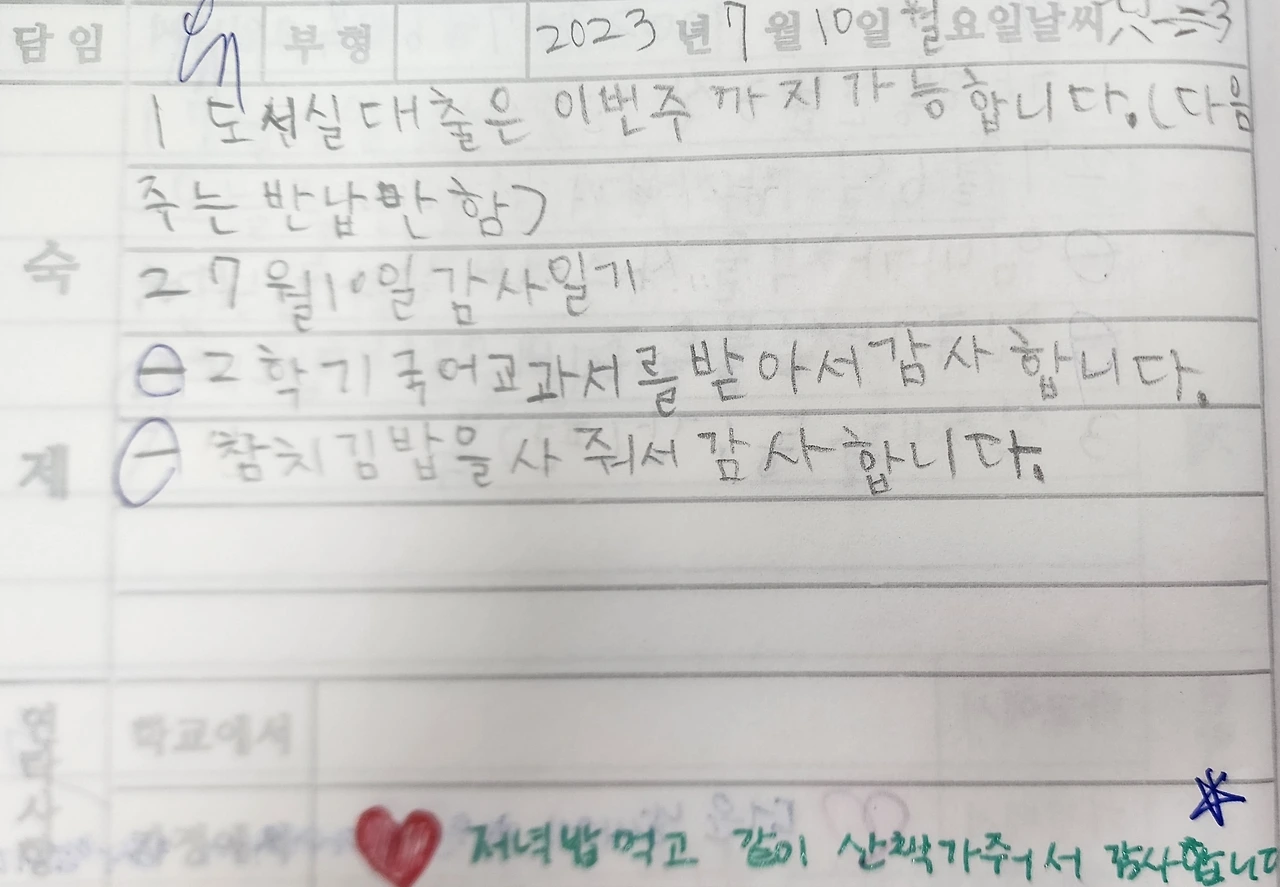 담임 부형 2023년 7월 10일 월요일 날씨
1 도서실 대출은 이번주 까지 가능합니다. (다음
주는 반납만 함)
숙
2 7월 10일 감사일기
2학기 국어교과서를 받아서 감사합니다.
제
참치김밥을 사줘서 감사합니다.
학교에서
가정에서
저녁밥 먹고 같이 산책가주어서 감사합니다